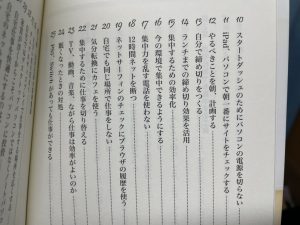 10 スタートダッシュのためにパソコンの電源を切らない
11 iPad、パソコンで朝一番にサイトをチェックする
12 やるべきことを朝、計画する
13 自分で締め切りをつくる
14 ランチまでの締め切り効果を活用
15 集中するための効率化
16 今の環境で集中できるようにする
17 集中力を乱す電話を使わない
18 12時間ネットを断つ
19 ネットサーフィンのチェックにブラウザの履歴を使う
20 自宅でも同じ場所で仕事をしない
21 気分転換にカフェを使う
22 集中するために仕事を切り替える
23 テレビ、映画、音楽、ながら仕事は効率がよいのか
24 眠くなったときの対処
があっても仕事ができる